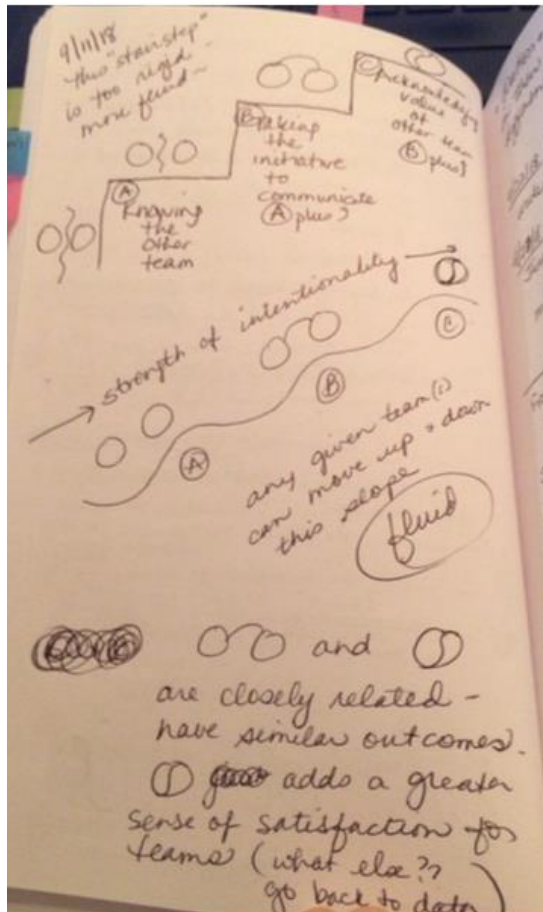 9/11/18
this "stairstep"
is too rigid -
more fluid -
Ⓐ
Knowing
the
other
team
Ⓑ Taking
the
initiative
to
communicate
Ⓐ plus}
Ⓒ Acknowledging
value
of
other team
Ⓑ plus}
→ strength of intentionality →
Ⓐ
Ⓑ
Ⓒ
any given team(s)
can move up + down
this slope
fluid
and
are closely related -
have similar outcomes.
adds a greater
sense of satisfaction for
teams (what else??
go back to data)